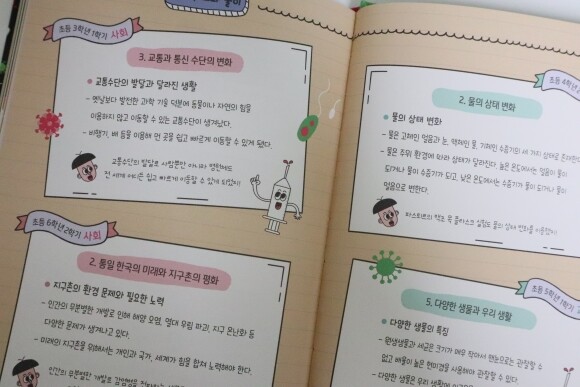 초등 3학년 1학기 사회
3. 교통과 통신 수단의 변화
• 교통수단의 발달과 달라진 생활
- 옛날보다 발전한 과학 기술 덕분에 동물이나 자연의 힘을
이용하지 않고 이동할 수 있는 교통수단이 생겨났다.
- 비행기, 배 등을 이용해 먼 곳을 쉽고 빠르게 이동할 수 있게 됐다.
교통수단의 발달로 사람뿐만 아니라
전 세계 어디든 쉽고 빠르게 이동할 수 있게 되었지!
초등 6학년 2학기 사회
2. 통일 한국의 미래와 지구촌의 평화
• 지구촌의 환경 문제와 필요한 노력
- 인간의 무분별한 개발로 인해 해양 오염, 열대 우림 파괴, 지구 온난화 등
다양한 문제가 생겨나고 있다.
- 미래의 지구촌을 위해서는 개인과 국가, 세계가 힘을 합쳐 노력해야 한다.
인간의 무분별한 개발로
초등 4학년
2. 물의 상태 변화
• 물의 상태 변화
- 물은 고체인 얼음과 눈, 액체인 물, 기체인 수증기의 세 가지 상태로
- 물은 주위 환경에 따라 상태가 달라진다. 높은 온도에서는 얼음이 물이
되거나 물이 수증기가 되고, 낮은 온도에서는 수증기가 물이 되거나 물이
얼음으로 변한다.
파스퇴르의 백조 목 플라스크 실험도 물의 상태 변화를
초등 5학년 1학기
5. 다양한 생물과 우리 생활
• 다양한 생물의 특징
- 원생생물과 세균은 크기가 매우 작아서 맨눈으로는 관찰할 수
없고 배율이 높은 현미경을 사용해야 관찰할 수 있다.
- 다양한 생물은 우리 생활에